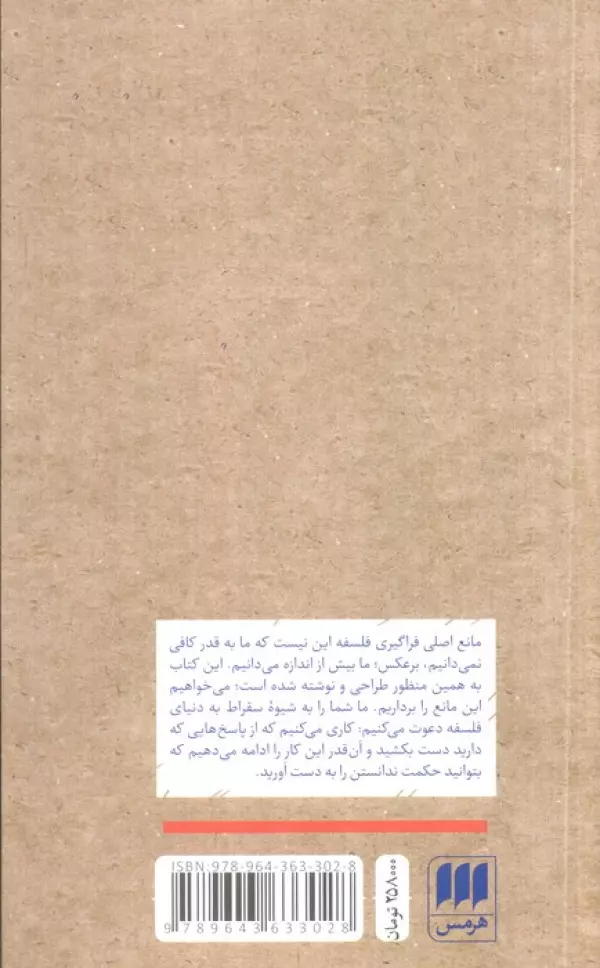 مانع اصلی فراگیری فلسفه این نیست که ما به قدر کافی
نمی‌دانیم، برعکس؛ ما بیش از اندازه می‌دانیم. این کتاب
به همین منظور طراحی و نوشته شده است؛ می‌خواهیم
این مانع را برداریم. ما شما را به شیوهٔ سقراط به دنیای
فلسفه دعوت می‌کنیم: کاری می‌کنیم که از پاسخ‌هایی که
دارید دست بکشید و آن‌قدر این کار را ادامه می‌دهیم که
بتوانید حکمت ندانستن را به دست آورید.
ISBN: 978-964-363-302-8
9 789643 633028
۲۵۸۰۰۰ تومان
هرمس